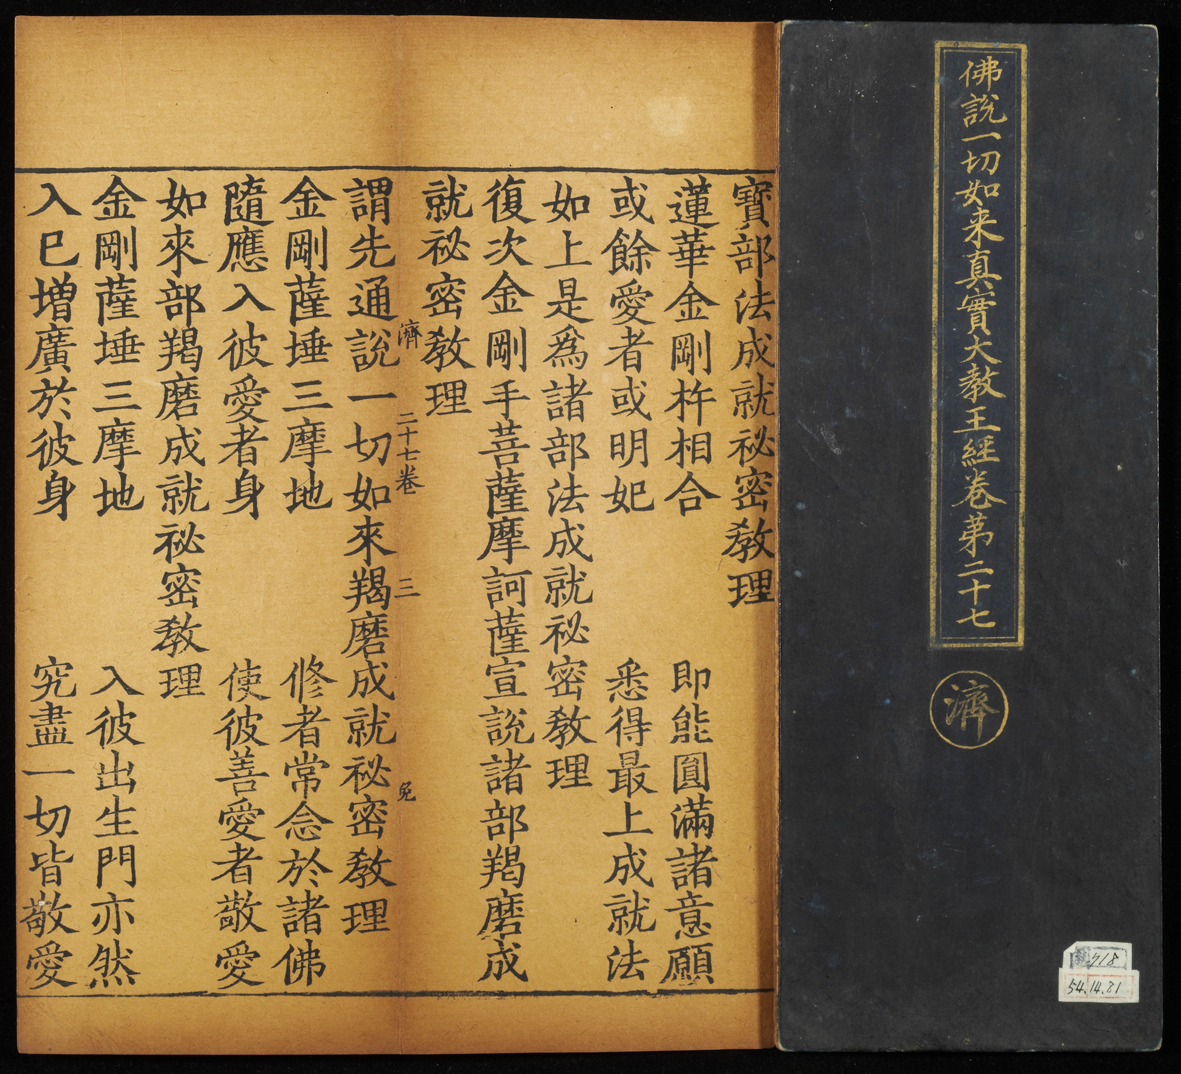 佛說一切如来真實大教王經卷苐二十七
濟
718
54.14.81
寶部法成就祕密教理
蓮華金剛杵相合 即能圓滿諸意願
或餘愛者或明妃 悉得最上成就法
如上是為諸部法成就祕密教理
復次金剛手菩薩摩訶薩宣說諸部羯磨成
就祕密教理
濟 二十七卷 三 免
謂先通說一切如來羯磨成就祕密教理
金剛薩埵三摩地 修者常念於諸佛
隨應入彼愛者身 使彼善愛者敬愛
如來部羯磨成就祕密教理
金剛薩埵三摩地 入彼出生門亦然
入已增廣於彼身 究盡一切皆敬愛